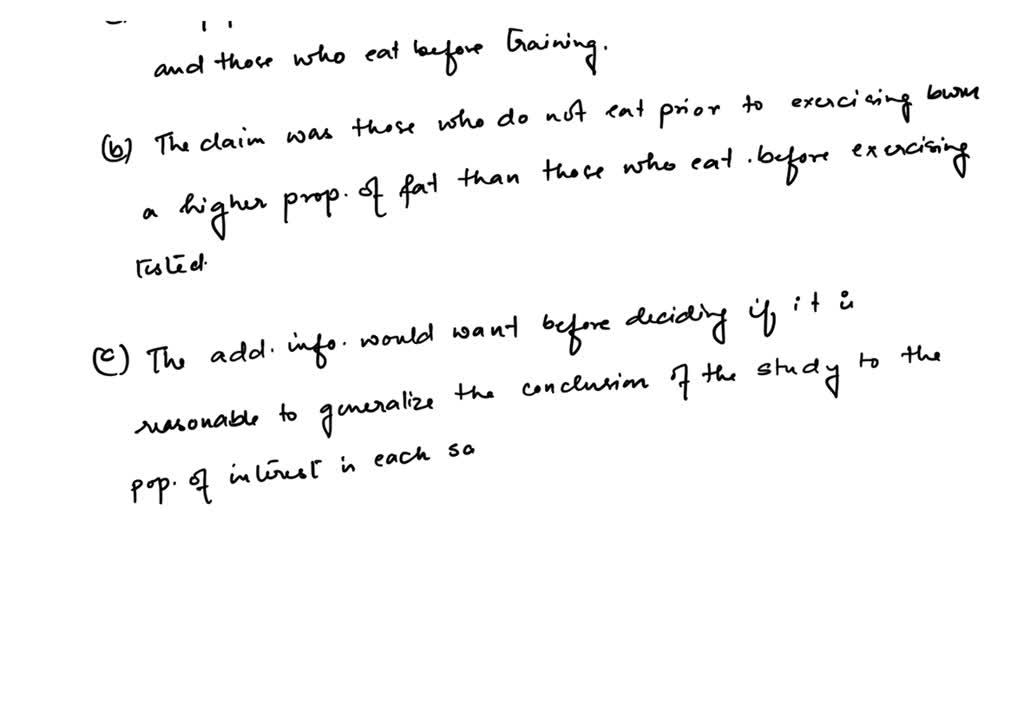 and those who eat before Training.
(b) The claim was those who do not eat prior to exercising burn
a higher prop. of fat than those who eat .before exercising
tested.
(c) The add. info. would want before deciding if it is
reasonable to generalize the conclusion of the study to the
pop. of interest in each sa